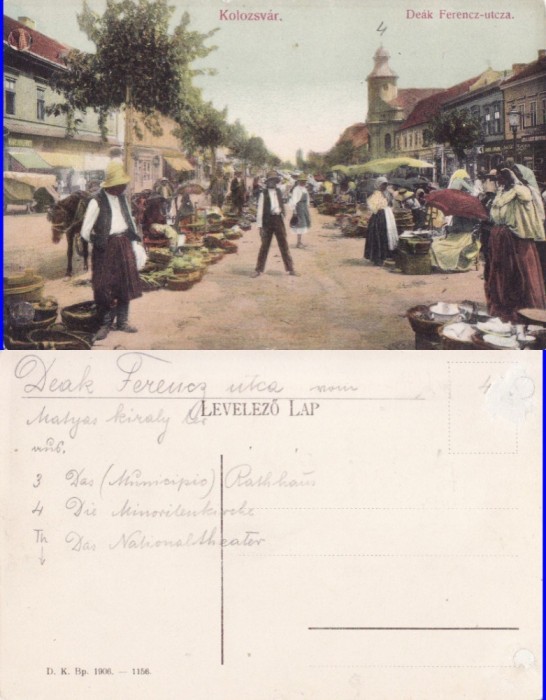 Kolozsvár.
Deák Ferencz-utcza.
4
Deak Ferencz utca vom
Matyas Király
aus.
LEVELEZŐ LAP
4
3 Das (Municipio) Rathhaus
4 Die Minoritenkirche
Th Das Nationaltheater
D. K. Bp. 1906. — 1156.